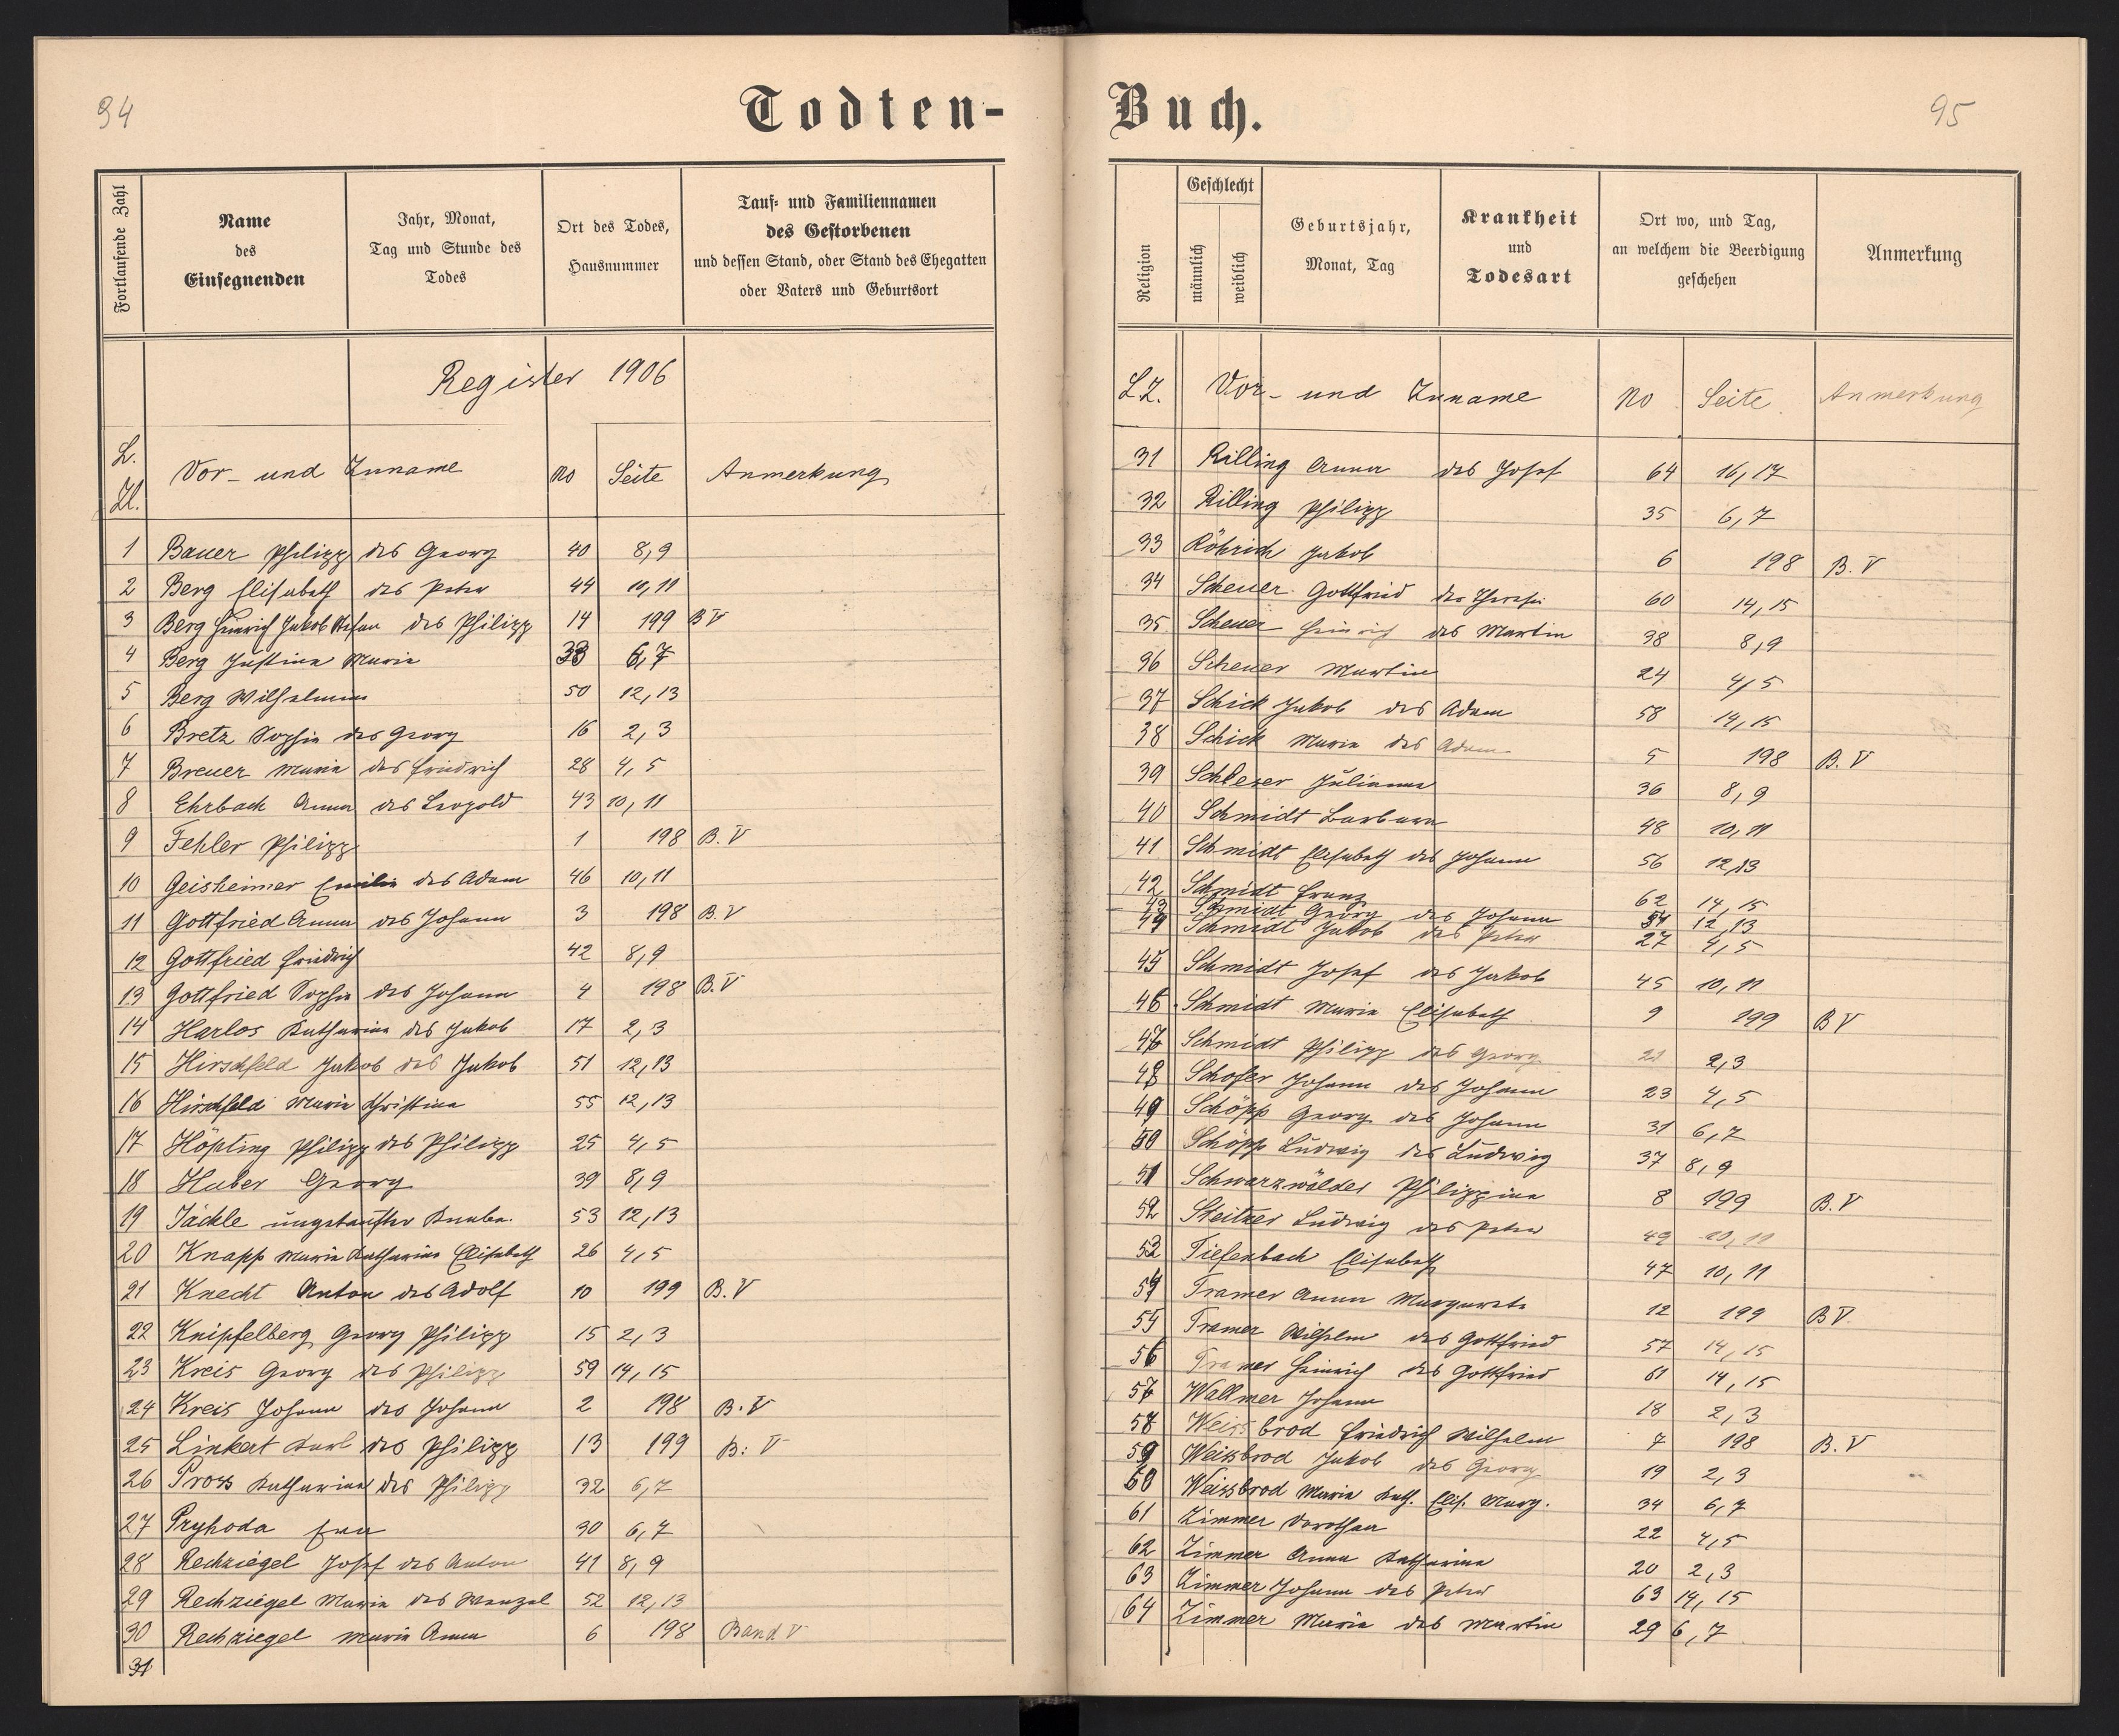 94
Todten-
Fortlaufende Zahl
Name
des
Einsegnenden
Jahr, Monat,
Tag und Stunde des
Todes
Ort des Todes,
Hausnummer
Tauf- und Familiennamen
des Gestorbenen
und dessen Stand, oder Stand des Ehegatten
oder Vaters und Geburtsort
Register 1906
L. Zl. Vor- und Zuname No Seite Anmerkung
1 Bauer Philipp des Georg 40 8,9
2 Berg Elisabeth des Peter 44 10,11
3 Berg Heinrich Jakob Stefan des Philipp 14 199 B V
4 Berg Justina Maria 33 6,7
5 Berg Wilhelmine 50 12,13
6 Bretz Sophia des Georg 16 2,3
7 Breuer Maria des Friedrich 28 4,5
8 Ehrbach Anna des Leopold 43 10,11
9 Fehler Philipp 1 198 B. V
10 Geisheimer Emilie des Adam 46 10,11
11 Gottfried Anna des Johann 3 198 B. V
12 Gottfried Friedrich 42 8,9
13 Gottfried Sophia des Johann 4 198 B. V
14 Harlos Katharina des Jakob 17 2,3
15 Hirschfeld Jakob des Jakob 51 12,13
16 Hirschfeld Maria Christina 55 12,13
17 Höpling Philipp des Philipp 25 4,5
18 Huber Georg 39 8,9
19 Jäckle ungetaufter Knabe. 53 12,13
20 Knapp Maria Katharina Elisabeth 26 4,5
21 Knecht Anton des Adolf 10 199 B. V
22 Knipfelberg Georg Philipp 15 2,3
23 Kreis Georg des Philipp 59 14,15
24 Kreis Johann des Johann 2 198 B. V
25 Linkert Karl des Philipp 13 199 B: V
26 Pross Katharina des Philipp 32 6,7
27 Pryhoda Eva 30 6,7
28 Rechziegel Josef des Anton 41 8,9
29 Rechziegel Maria des Wenzel 52 12,13
30 Rechziegel Maria Anna 6 198 Band V
31
Buch.
95
Religion
Geschlecht
männlich
weiblich
Geburtsjahr,
Monat, Tag
Krankheit
und
Todesart
Ort wo, und Tag,
an welchem die Beerdigung
geschehen
Anmerkung
L Z. Vor- und Zuname No Seite. Anmerkung
31 Rilling Anna des Josef 64 16,17
32 Rilling Philipp 35 6,7
33 Röhrich Jakob 6 198 B. V
34 Scheuer Gottfried der Theresia 60 14,15
35 Scheuer Heinrich des Martin 38 8,9
36 Scheuer Martin 24 4,5
37 Schick Jakob des Adam 58 14,15
38 Schick Maria des Adam 5 198 B. V
39 Schleser Julianna 36 8,9
40 Schmidt Barbara 48 10,11
41 Schmidt Elisabeth des Johann 56 12,13
42 Schmidt Franz 62 14,15
43 Schmidt Georg des Johann 54 12,13
44 Schmidt Jakob des Peter 27 4,5
45 Schmidt Josef des Jakob 45 10,11
46 Schmidt Maria Elisabeth 9 199 B V
47 Schmidt Philipp des Georg 21 2,3
48 Schofer Johann des Johann 23 4,5
49 Schöpp Georg des Johann 31 6,7
50 Schöpp Ludwig des Ludwig 37 8,9
51 Schwarzwälder Philippina 8 199 B. V
52 Steitzer Ludwig des Peter 49 10,11
53 Tiefenbach Elisabeth 47 10,11
54 Tramer Anna Margareta 12 199 B V.
55 Tramer Wilhelm des Gottfried 57 14,15
56 Tramer Heinrich des Gottfried 61 14,15
57 Wallmer Johann 18 2,3
58 Weissbrod Friedrich Wilhelm 7 198 B. V
59 Weissbrod Jakob des Georg 19 2,3
60 Weissbrod Maria Kath. Elis. Marg. 34 6,7
61 Zimmer Dorothea 22 4,5
62 Zimmer Anna Katharina 20 2,3
63 Zimmer Johann des Peter 63 14,15
64 Zimmer Maria des Martin 29 6,7